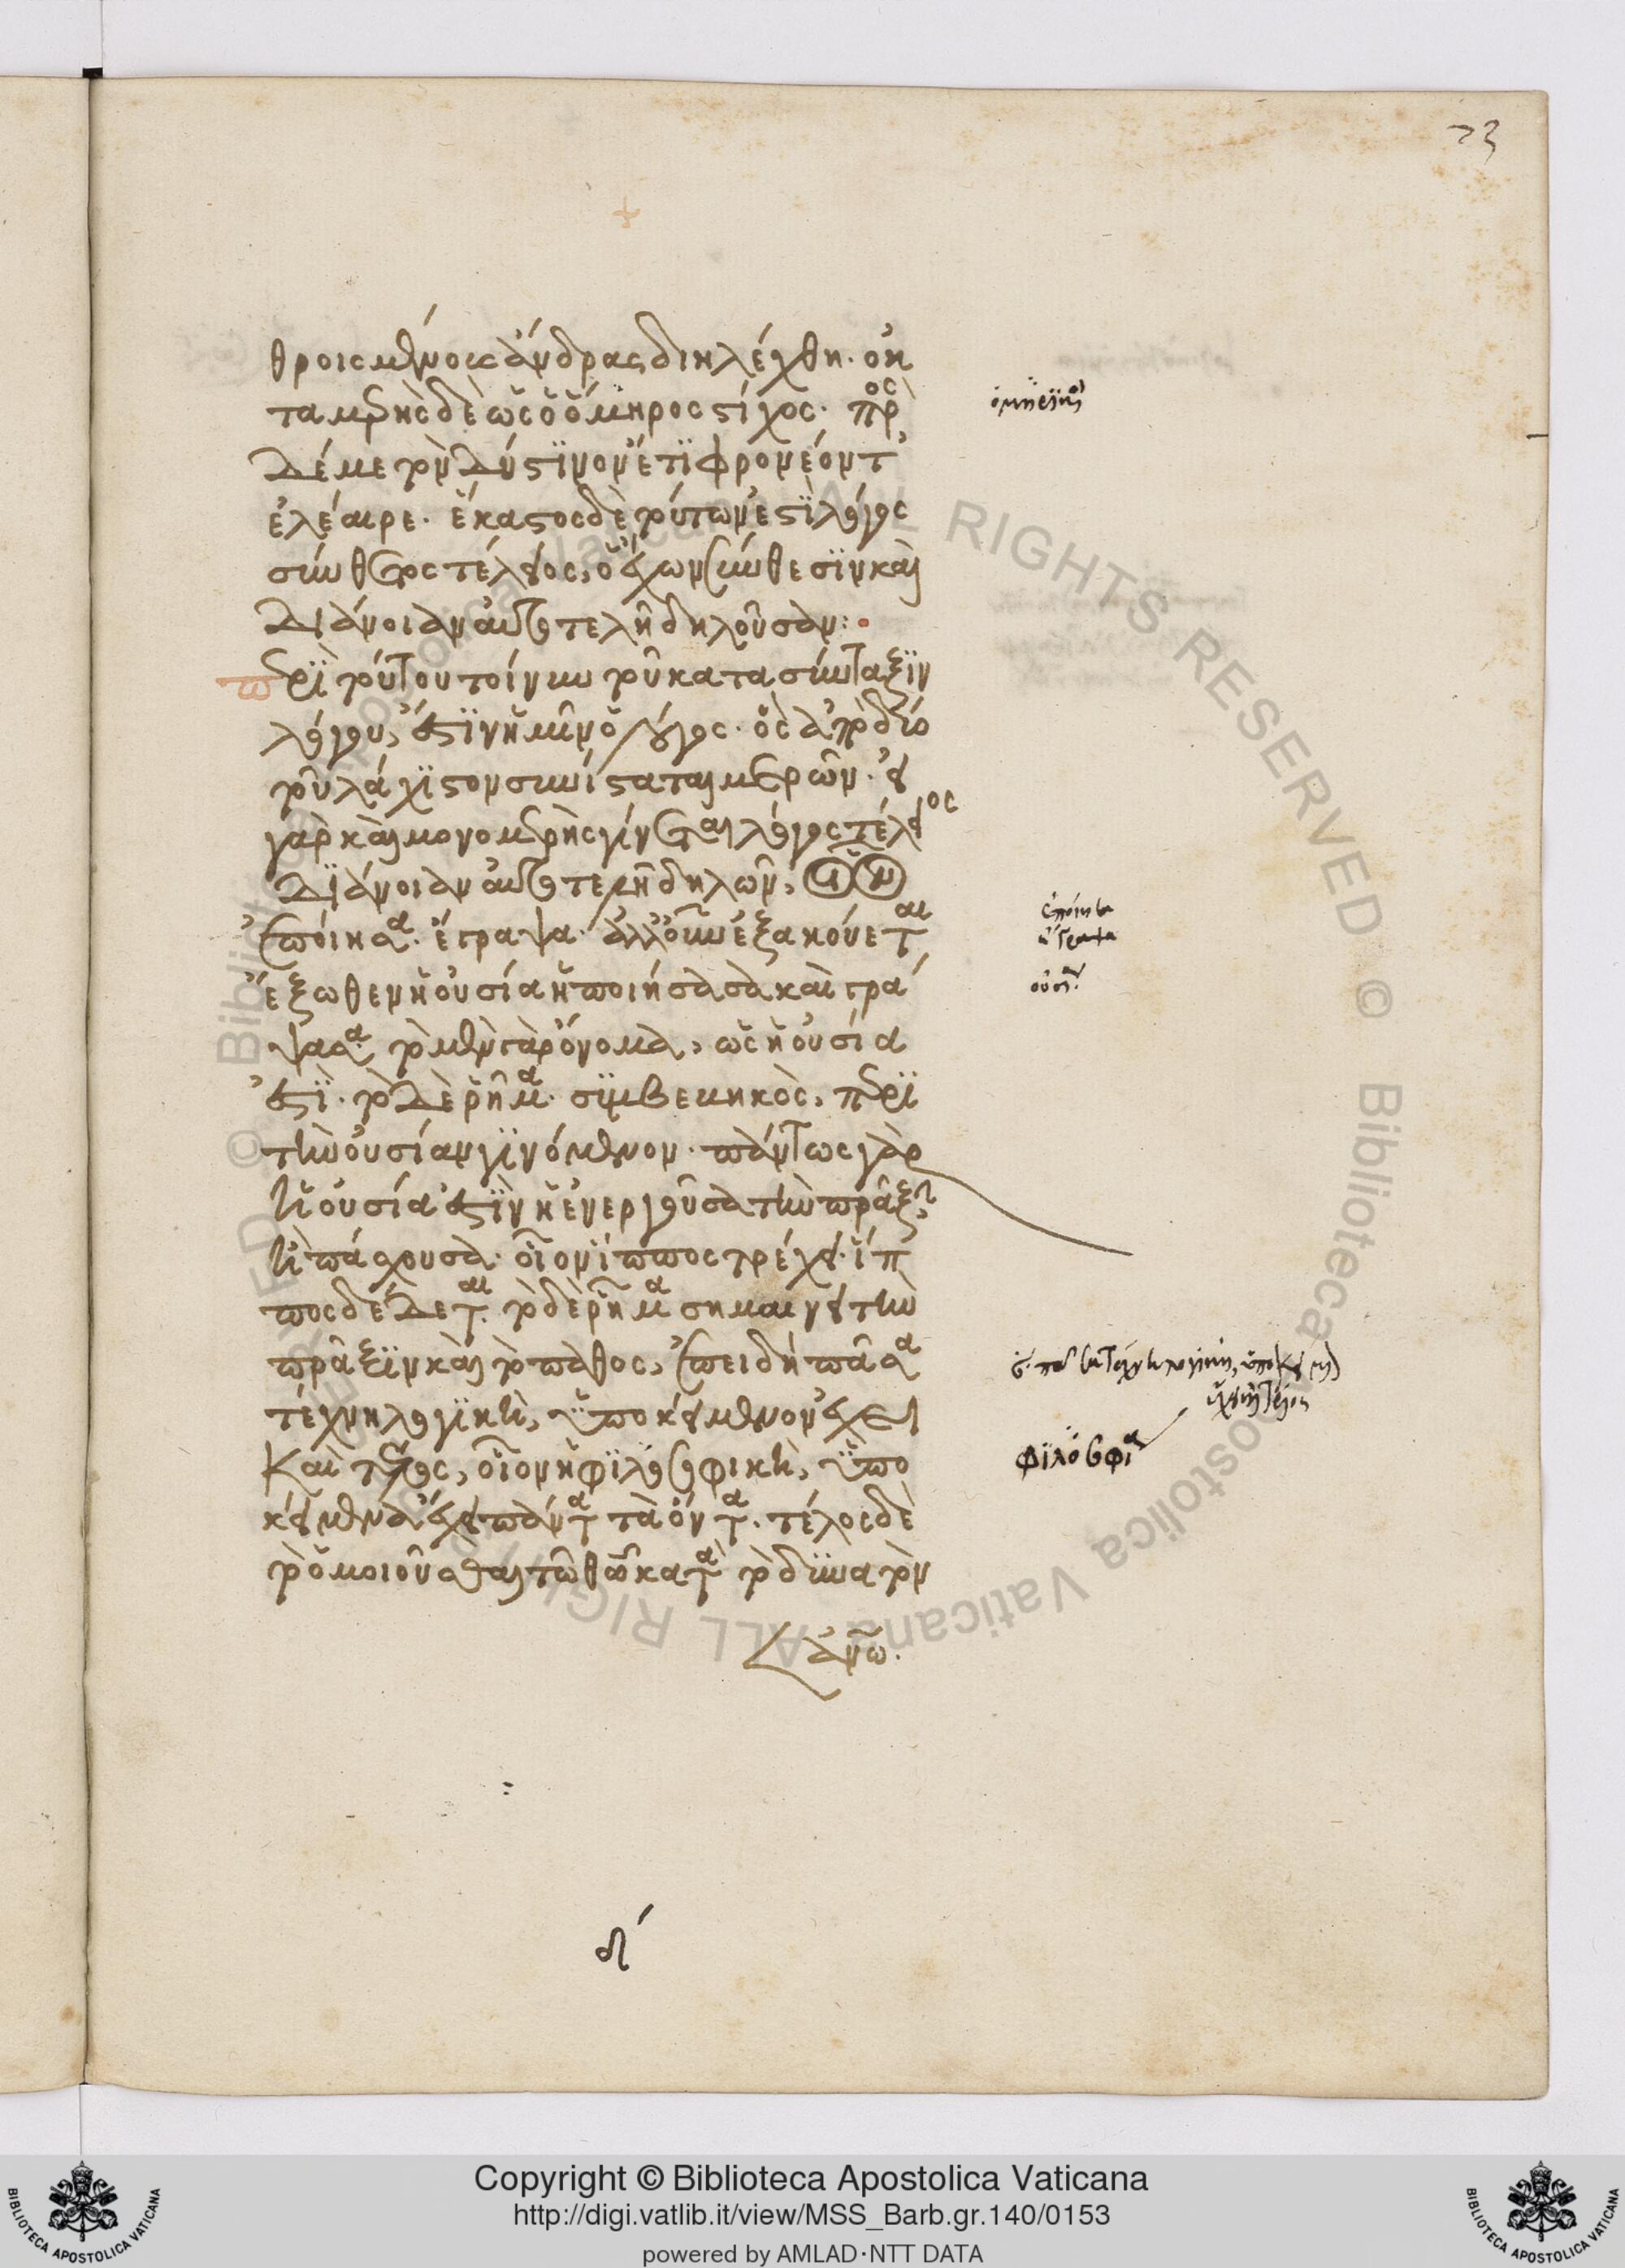 73
θροις μὲν οἷς ἄνδρας διηλέχθη. ὀκ
ταμερὴς δὲ ὡς ὁ ὁμηρος στίχος. πρὸς
δέ με τὸν δύστηνον ἔτι φρονέοντ
ἐλέαιρε. ἕκαστος δὲ τούτων ἐστὶ λόγος
σύνθετος τέλειος, ὁ ἔχων σύνθεσιν καὶ
διάνοιαν αὐτοτελῆ δηλοῦσαν:
περὶ τούτου τοίνυν τοῦ κατὰ σύνταξιν
λόγου, ἔστιν ἡμῖν ὁ λόγος. ὃς ἀπὸ δύο
τοὐλάχιστον συνίσταται μερῶν. εἰ
γὰρ καὶ μονομερὴς γίνεται λόγος τέλειος
διάνοιαν αὐτοτελῆ δηλῶν,
ἐποίησα. ἔγραψα. ἀλλ' οὖν ἐξακούεται
ἔξωθεν ἡ οὐσία ἡ ποιήσασα καὶ γρά
ψασα τὸ μὲν γὰρ ὄνομα, ὡς ἡ οὐσία
ἐστὶ. τὸ δὲ ῥῆμα. συμβεβηκὸς, περὶ
τὴν οὐσίαν γινόμενον. πάντως γὰρ
ἢ οὐσία ἐστὶν ἡ ἐνεργοῦσα τὴν πρᾶξιν
ἢ πάσχουσα. οἷον ἵππος τρέχει. ἵπ
πος δέδεται. τὸ δὲ ῥῆμα σημαίνει τὴν
πρᾶξιν καὶ τὸ πάθος, ἐπειδὴ πᾶσα
τέχνη λογικὴ, ὑποκείμενον ἔχει
καὶ τέλος, οἷον ἡ φιλοσοφικὴ, ὑπο
κείμενα ἔχει πάντα τὰ ὄντα. τέλος δὲ
τὸ ὁμοιοῦσθαι τῷ θεῷ κατὰ τὸ δυνατὸν
ἀνθρώπῳ.
ἐποίησα
ἔγραψα
οὐσία
φιλοσοφία
Copyright © Biblioteca Apostolica Vaticana
http://digi.vatlib.it/view/MSS_Barb.gr.140/0153
powered by AMLAD·NTT DATA
BIBLIOTECA APOSTOLICA VATICANA
BIBLIOTECA APOSTOLICA VATICANA